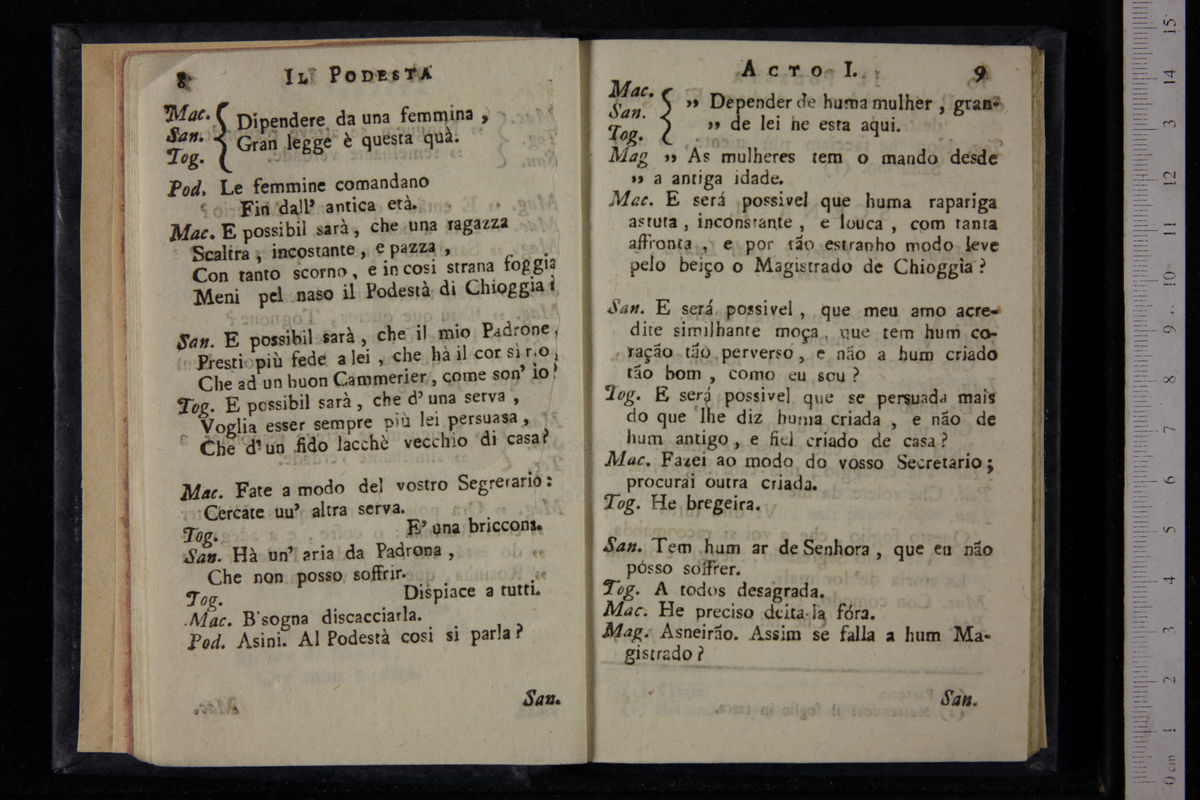 8 IL PODESTÀ
Mac.
San.
Tog.
Dipendere da una femmina ,
Gran legge è questa quà.
Pod. Le femmine comandano
Fin dall' antica età.
Mac. E possibil sarà , che una ragazza
Scaltra , incostante , e pazza ,
Con tanto scorno , e in cosi strana foggia
Meni pel naso il Podestà di Chioggia ?
San. E possibil sarà , che il mio Padrone ,
Presti più fede a lei , che hà il cor sì rio ,
Che ad un buon Cammerier , come son' io ?
Tog. E possibil sarà , che d' una serva ,
Voglia esser sempre più lei persuasa ,
Che d' un fido lacchè vecchio di casa ?
Mac. Fate a modo del vostro Segretario :
Cercate uu' altra serva.
Tog. E' una briccona.
San. Hà un' aria da Padrona ,
Che non posso soffrir.
Tog. Dispiace a tutti.
Mac. B'sogna discacciarla.
Pod. Asini. Al Podestà cosi si parla ?
San.
ACTO I. 9
Mac.
San.
Tog.
„ Depender de huma mulher , gran-
„ de lei he esta aqui.
Mag „ As mulheres tem o mando desde
„ a antiga idade.
Mac. E será possivel que huma rapariga
astuta , inconstante , e louca , com tanta
affronta , e por tão estranho modo leve
pelo beiço o Magistrado de Chioggia ?
San. E será possivel , que meu amo acre-
dite similhante moça , que tem hum co-
ração tão perverso , e não a hum criado
tão bom , como eu sou ?
Tog. E será possivel que se persuada mais
do que lhe diz huma criada , e não de
hum antigo , e fiel criado de casa ?
Mac. Fazei ao modo do vosso Secretario ;
procurai outra criada.
Tog. He bregeira.
San. Tem hum ar de Senhora , que eu não
pósso soffrer.
Tog. A todos desagrada.
Mac. He preciso deita-la fóra.
Mag. Asneirão. Assim se falla a hum Ma-
gistrado ?
San.